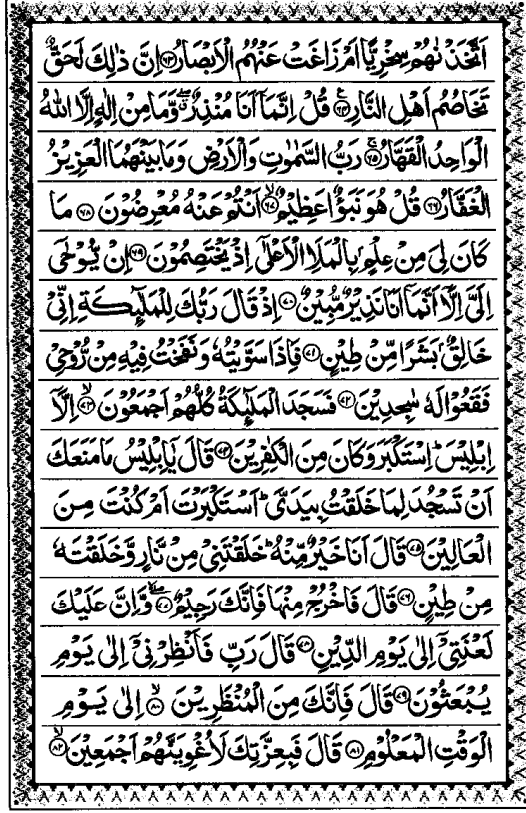 اَتَّخَذْنٰهُمْ سِخْرِيًّا اَمْ زَاغَتْ عَنْهُمُ الْاَبْصَارُ ﴿۶۳﴾ اِنَّ ذٰلِكَ لَحَقٌّ
تَخَاصُمُ اَهْلِ النَّارِ ﴿۶۴﴾ قُلْ اِنَّمَاۤ اَنَا مُنْذِرٌ ۖ وَّمَا مِنْ اِلٰهٍ اِلَّا اللّٰهُ
الْوَاحِدُ الْقَهَّارُ ﴿۶۵﴾ رَبُّ السَّمٰوٰتِ وَالْاَرْضِ وَمَا بَيْنَهُمَا الْعَزِيْزُ
الْغَفَّارُ ﴿۶۶﴾ قُلْ هُوَ نَبَؤٌا عَظِيْمٌ ﴿۶۷﴾ اَنْتُمْ عَنْهُ مُعْرِضُوْنَ ﴿۶۸﴾ مَا
كَانَ لِيَ مِنْ عِلْمٍۭ بِالْمَلَاِ الْاَعْلٰۤى اِذْ يَخْتَصِمُوْنَ ﴿۶۹﴾ اِنْ يُّوْحٰۤى
اِلَيَّ اِلَّاۤ اَنَّمَاۤ اَنَا نَذِيْرٌ مُّبِيْنٌ ﴿۷۰﴾ اِذْ قَالَ رَبُّكَ لِلْمَلٰٓئِكَةِ اِنِّيْ
خَالِقٌۢ بَشَرًا مِّنْ طِيْنٍ ﴿۷۱﴾ فَاِذَا سَوَّيْتُهٗ وَنَفَخْتُ فِيْهِ مِنْ رُّوْحِيْ
فَقَعُوْا لَهٗ سٰجِدِيْنَ ﴿۷۲﴾ فَسَجَدَ الْمَلٰٓئِكَةُ كُلُّهُمْ اَجْمَعُوْنَ ﴿۷۳﴾ اِلَّاۤ
اِبْلِيْسَ ؕ اِسْتَكْبَرَ وَكَانَ مِنَ الْكٰفِرِيْنَ ﴿۷۴﴾ قَالَ يٰۤاِبْلِيْسُ مَا مَنَعَكَ
اَنْ تَسْجُدَ لِمَا خَلَقْتُ بِيَدَيَّ ؕ اَسْتَكْبَرْتَ اَمْ كُنْتَ مِنَ
الْعَالِيْنَ ﴿۷۵﴾ قَالَ اَنَا خَيْرٌ مِّنْهُ ؕ خَلَقْتَنِيْ مِنْ نَّارٍ وَّخَلَقْتَهٗ
مِنْ طِيْنٍ ﴿۷۶﴾ قَالَ فَاخْرُجْ مِنْهَا فَاِنَّكَ رَجِيْمٌ ﴿۷۷﴾ وَّاِنَّ عَلَيْكَ
لَعْنَتِيْۤ اِلٰى يَوْمِ الدِّيْنِ ﴿۷۸﴾ قَالَ رَبِّ فَاَنْظِرْنِيْۤ اِلٰى يَوْمِ
يُبْعَثُوْنَ ﴿۷۹﴾ قَالَ فَاِنَّكَ مِنَ الْمُنْظَرِيْنَ ﴿۸۰﴾ اِلٰى يَوْمِ
الْوَقْتِ الْمَعْلُوْمِ ﴿۸۱﴾ قَالَ فَبِعِزَّتِكَ لَاُغْوِيَنَّهُمْ اَجْمَعِيْنَ ﴿۸۲﴾